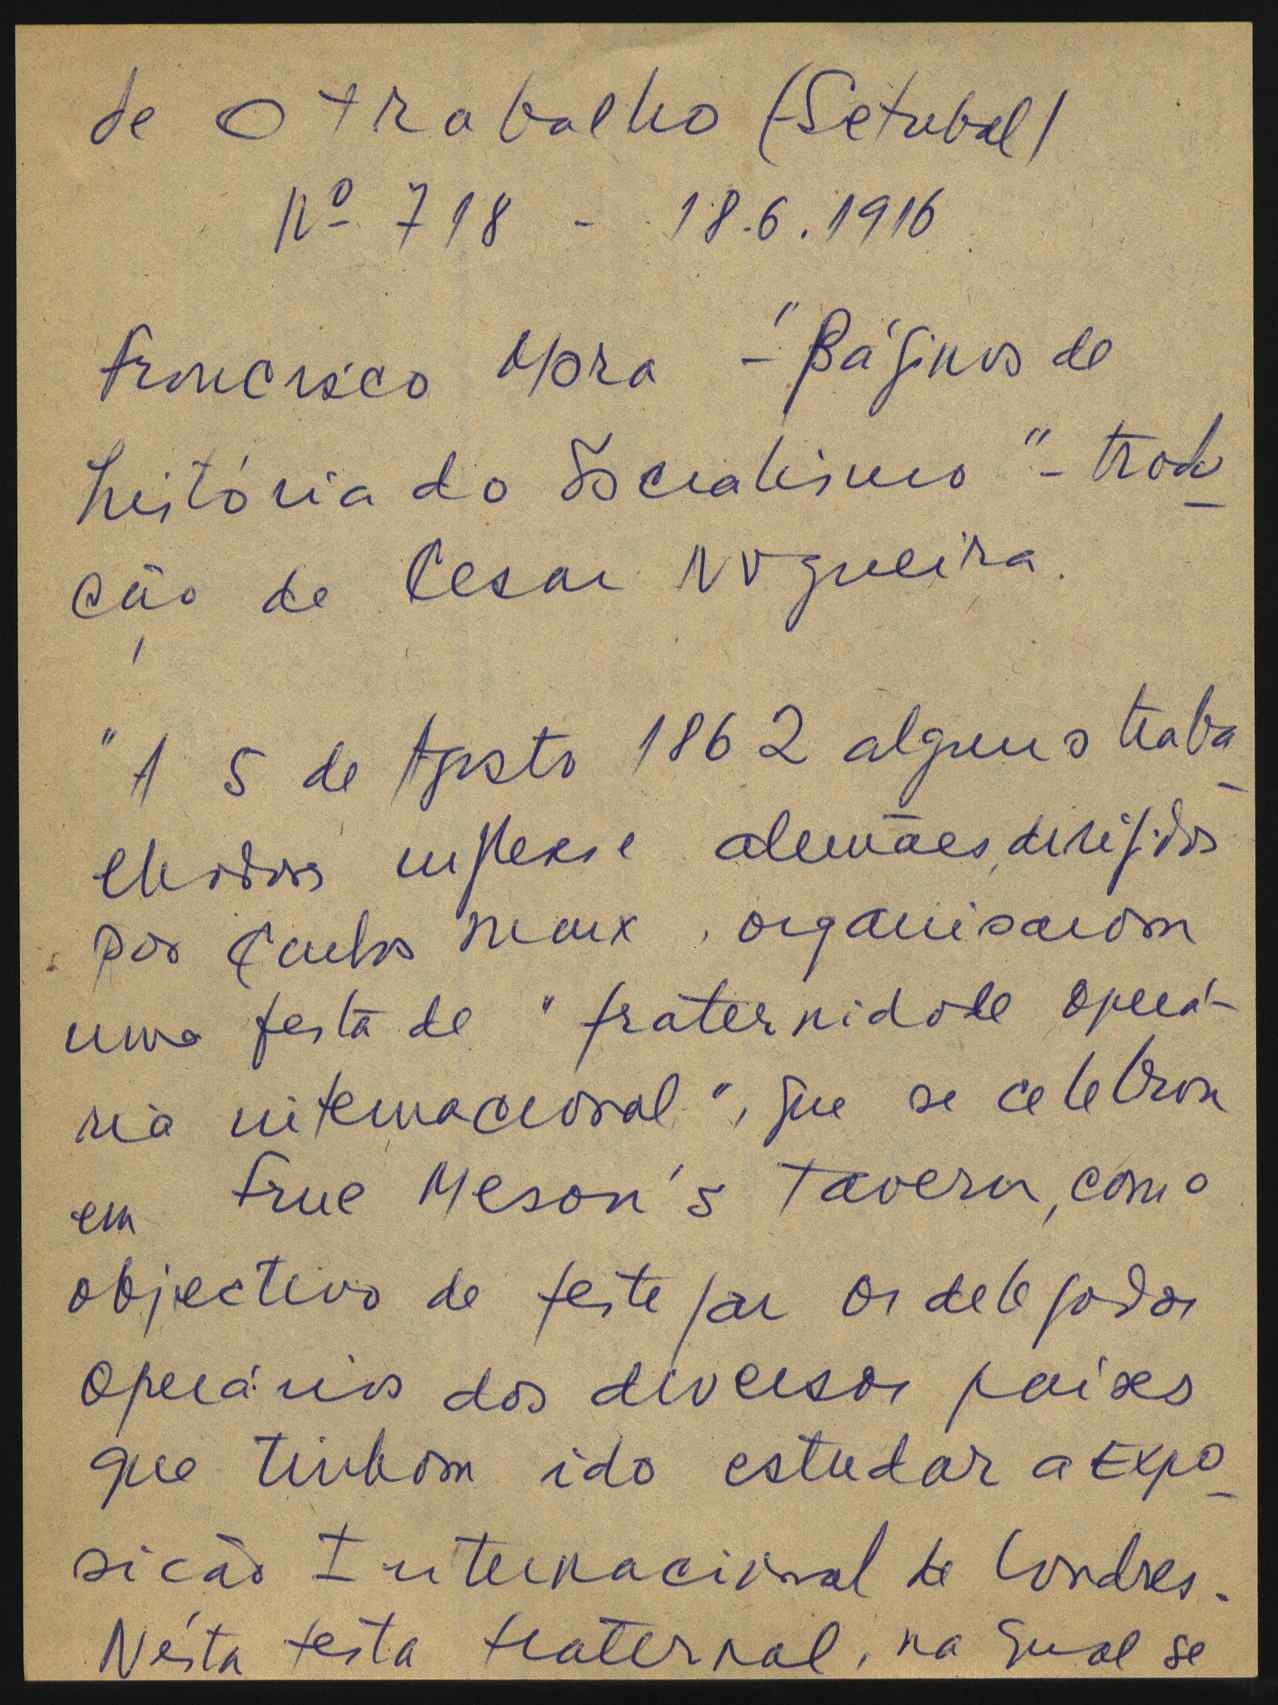 de O trabalho (Setubal)
Nº 718 - 18.6.1916
Francisco Mora - "Páginas de
história do Socialismo" - tradu-
ção de Cesar Nogueira.
"A 5 de Agosto 1862 alguns traba-
lhadores ingleses e alemães, dirigidos
por Carlos Marx, organisaram
uma festa de "fraternidade operá-
ria internacional", que se celebrou
em Frue Meson's Tavern, com o
objectivo de festejar os delegados
operários dos diversos países
que tinham ido estudar a Expo-
sicão Internacional de Londres.
Nésta festa fraternal, na qual se